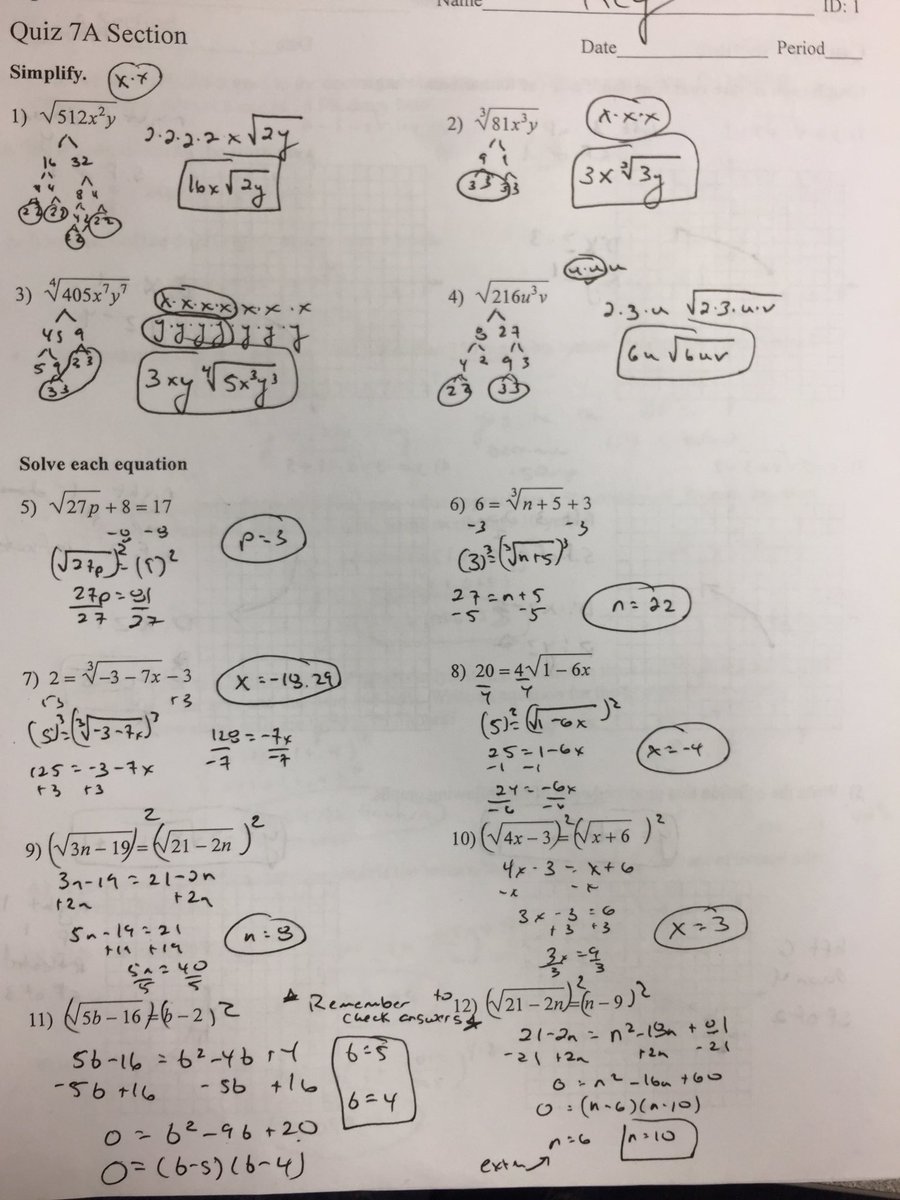 Name Key ID: 1
Quiz 7A Section
Date Period
Simplify. x·x
1) √512x²y
16 32
4 4 8 4
2 2 2 2 4 2 2 2
2 2
2·2·2·2 x √2y
16x √2y
2) ∛81x³y
x·x·x
9 9
3 3 3 3
3x ∛3y
3) ⁴√405x⁷y⁷
45 9
5 9 3 3
3 3
x·x·x·x x·x·x
y·y·y·y y·y·y
3xy ⁴√5x³y³
4) √216u³v
u·u u
8 27
4 2 9 3
2 2 3 3
2·3·u √2·3·u·v
6u √6uv
Solve each equation
5) √27p + 8 = 17
-8 -8
(√27p)² = (9)²
27p = 81
27 27
p = 3
6) 6 = ∛n + 5 + 3
-3 -3
(3)³ = (∛n+5)³
27 = n + 5
-5 -5
n = 22
7) 2 = ∛-3 – 7x – 3
+3 +3
(5)³ = (∛-3-7x)³
125 = -3 - 7x
+3 +3
128 = -7x
-7 -7
x = -18.29
8) 20 = 4√1 – 6x
4 4
(5)² = (√1 - 6x)²
25 = 1 - 6x
-1 -1
24 = -6x
-6 -6
x = -4
9) (√3n – 19)² = (√21 – 2n)²
3n - 19 = 21 - 2n
+2n +2n
5n - 19 = 21
+19 +19
5n = 40
5 5
n = 8
10) (√4x – 3)² = (√x + 6)²
4x - 3 = x + 6
-x -x
3x - 3 = 6
+3 +3
3x = 9
3 3
x = 3
11) (√5b – 16)² = (b – 2)²
5b - 16 = b² - 4b + 4
-5b + 16 - 5b + 16
0 = b² - 9b + 20
0 = (b-5)(b-4)
b = 5
b = 4
Remember to
check answers
12) (√21 – 2n)² = (n – 9)²
21 - 2n = n² - 18n + 81
-21 + 2n +2n -21
0 = n² - 16n + 60
0 = (n-6)(n-10)
n = 6 n = 10